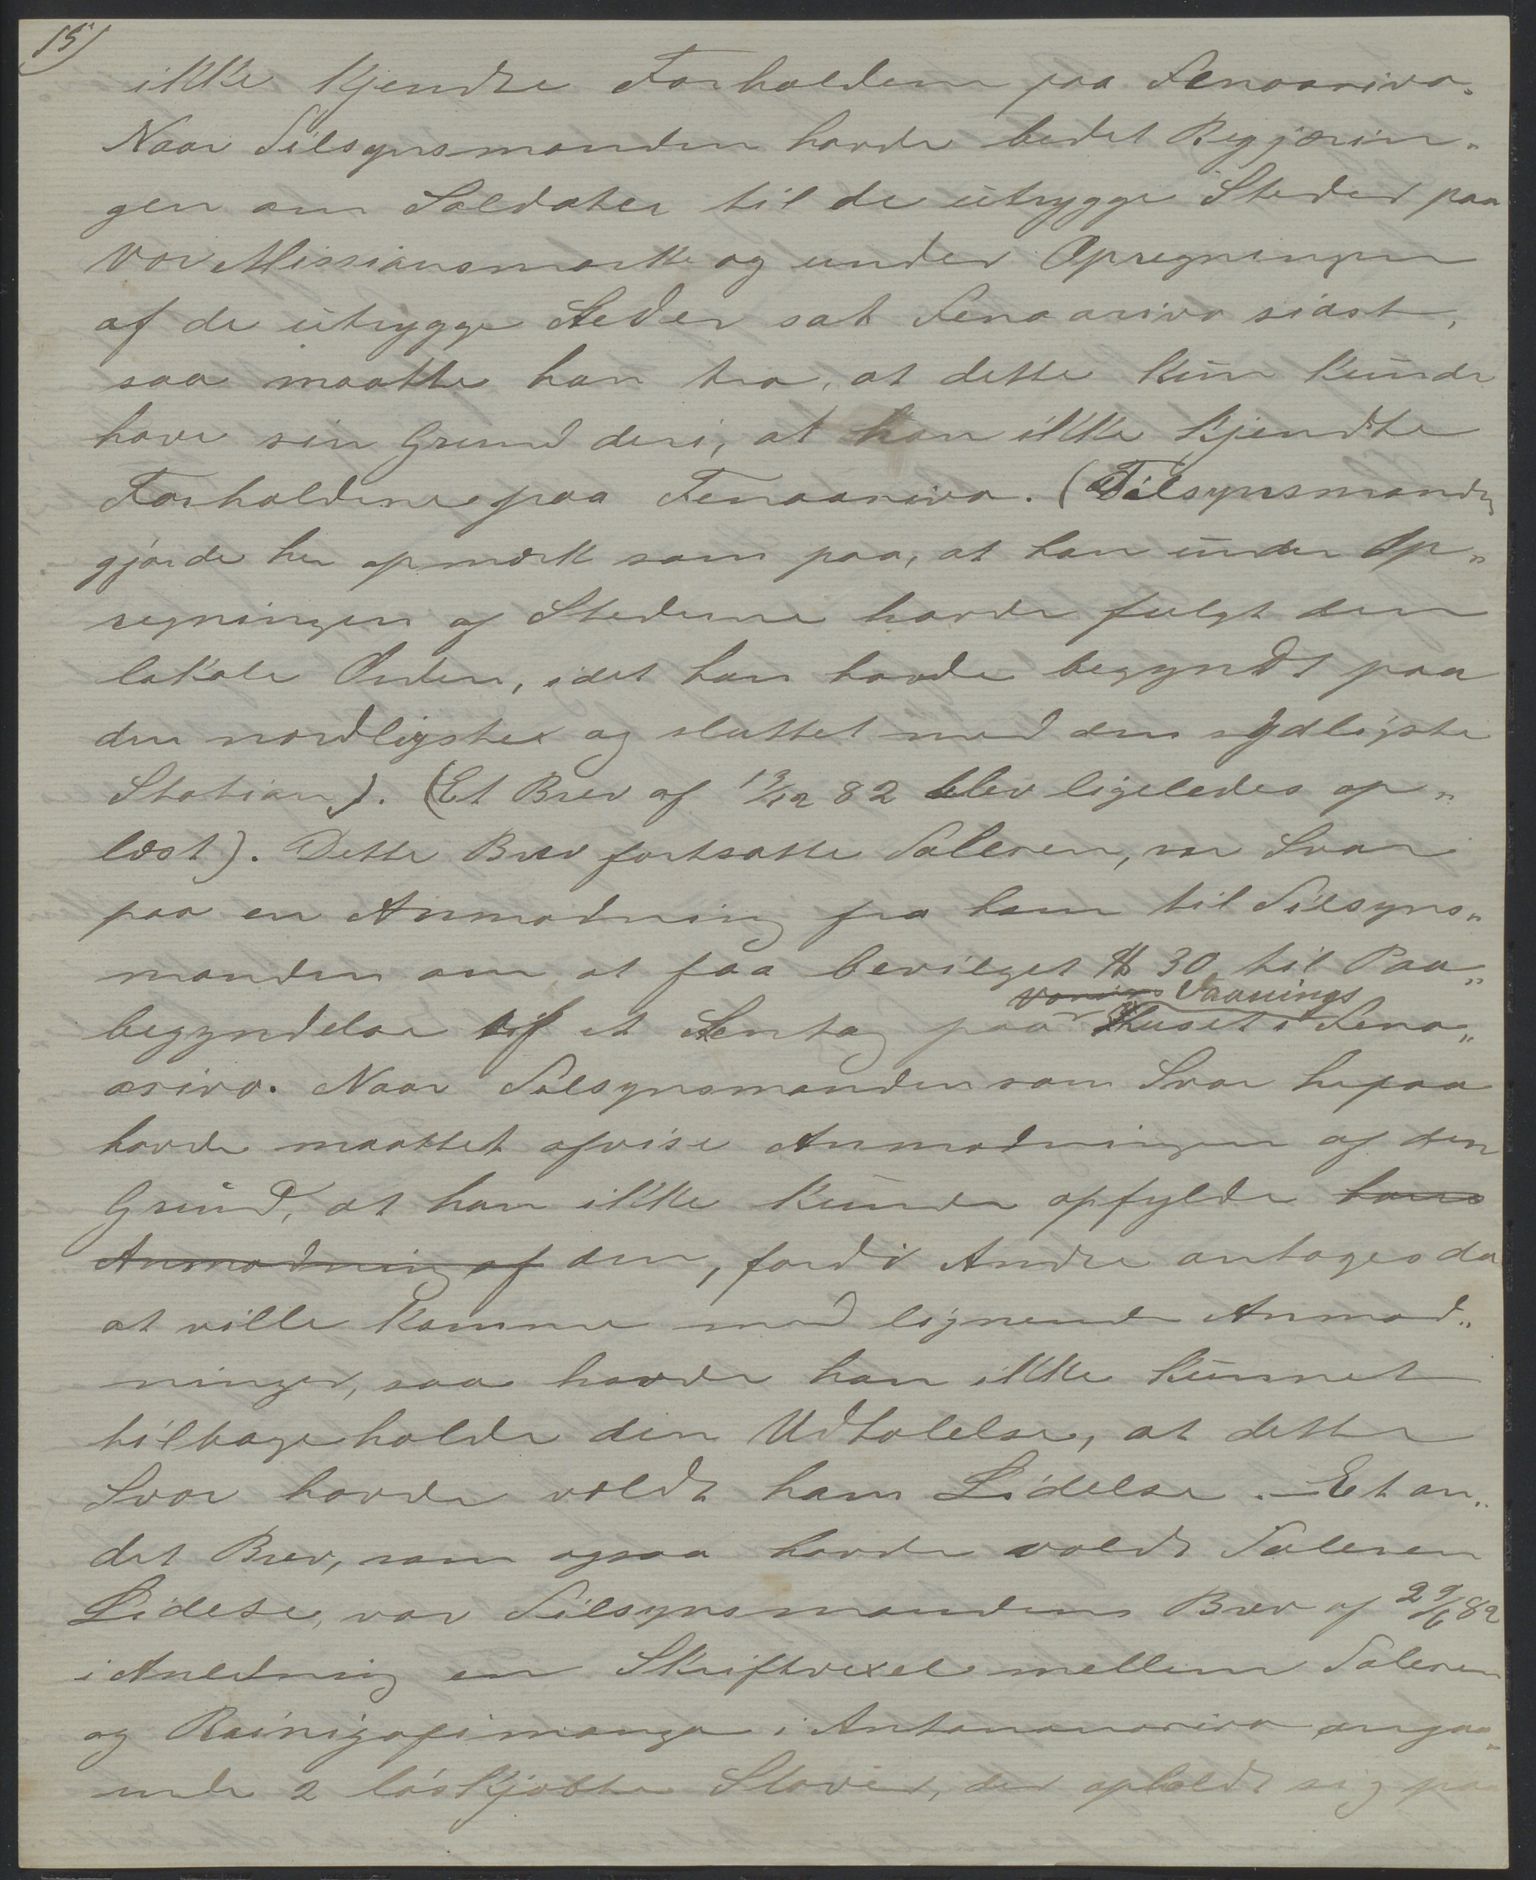 15)
ikke kjendte Forholdene paa Fenoarivo.
Naar Tilsynsmanden havde bedet Regjerin„
gen om Soldater til de utrygge Steder paa
vor Missionsmark og under Opregningen
af de utrygge Steder sat Fenoarivo sidst,
saa maatte han tro, at dette kun kunde
have sin Grund deri, at han ikke kjendte
Forholdene paa Fenoarivo. (Tilsynsmanden
gjorde her opmærksom paa, at han under Op„
regningen af Stederne havde fulgt den
lokale Orden, idet han havde begyndt paa
den nordligste og sluttet med den sydligste
Station). (Et Brev af 19/12 82 blev ligeledes op„
læst). Dette Brev fortsatte Taleren, var Svar
paa en Anmodning fra ham til Tilsyns„
manden om at faa bevilget $ 30 til Paa„
Vaanings
begyndelse af et Stentag paa Huset i Feno„
arivo. Naar Tilsynsmanden som Svar herpaa
havde maattet afvise Anmodningen af den
Grund, at han ikke kunde opfylde hans
Anmodning af den, fordi Andre antoges da
at ville komme med lignende Anmod„
ninger, saa havde han ikke kunnet
tilbageholde den Udtalelse, at dette
Svar havde voldt ham Lidelse. – Et an„
det Brev, som ogsaa havde voldt Taleren
Lidelse, var Tilsynsmandens Brev af 29/6 82
i Anledning en Skriftvexel mellem Taleren
og Rainizafimanga i Antananarivo angaa„
ende 2 løskjøbte Slaver, der opholdt sig paa